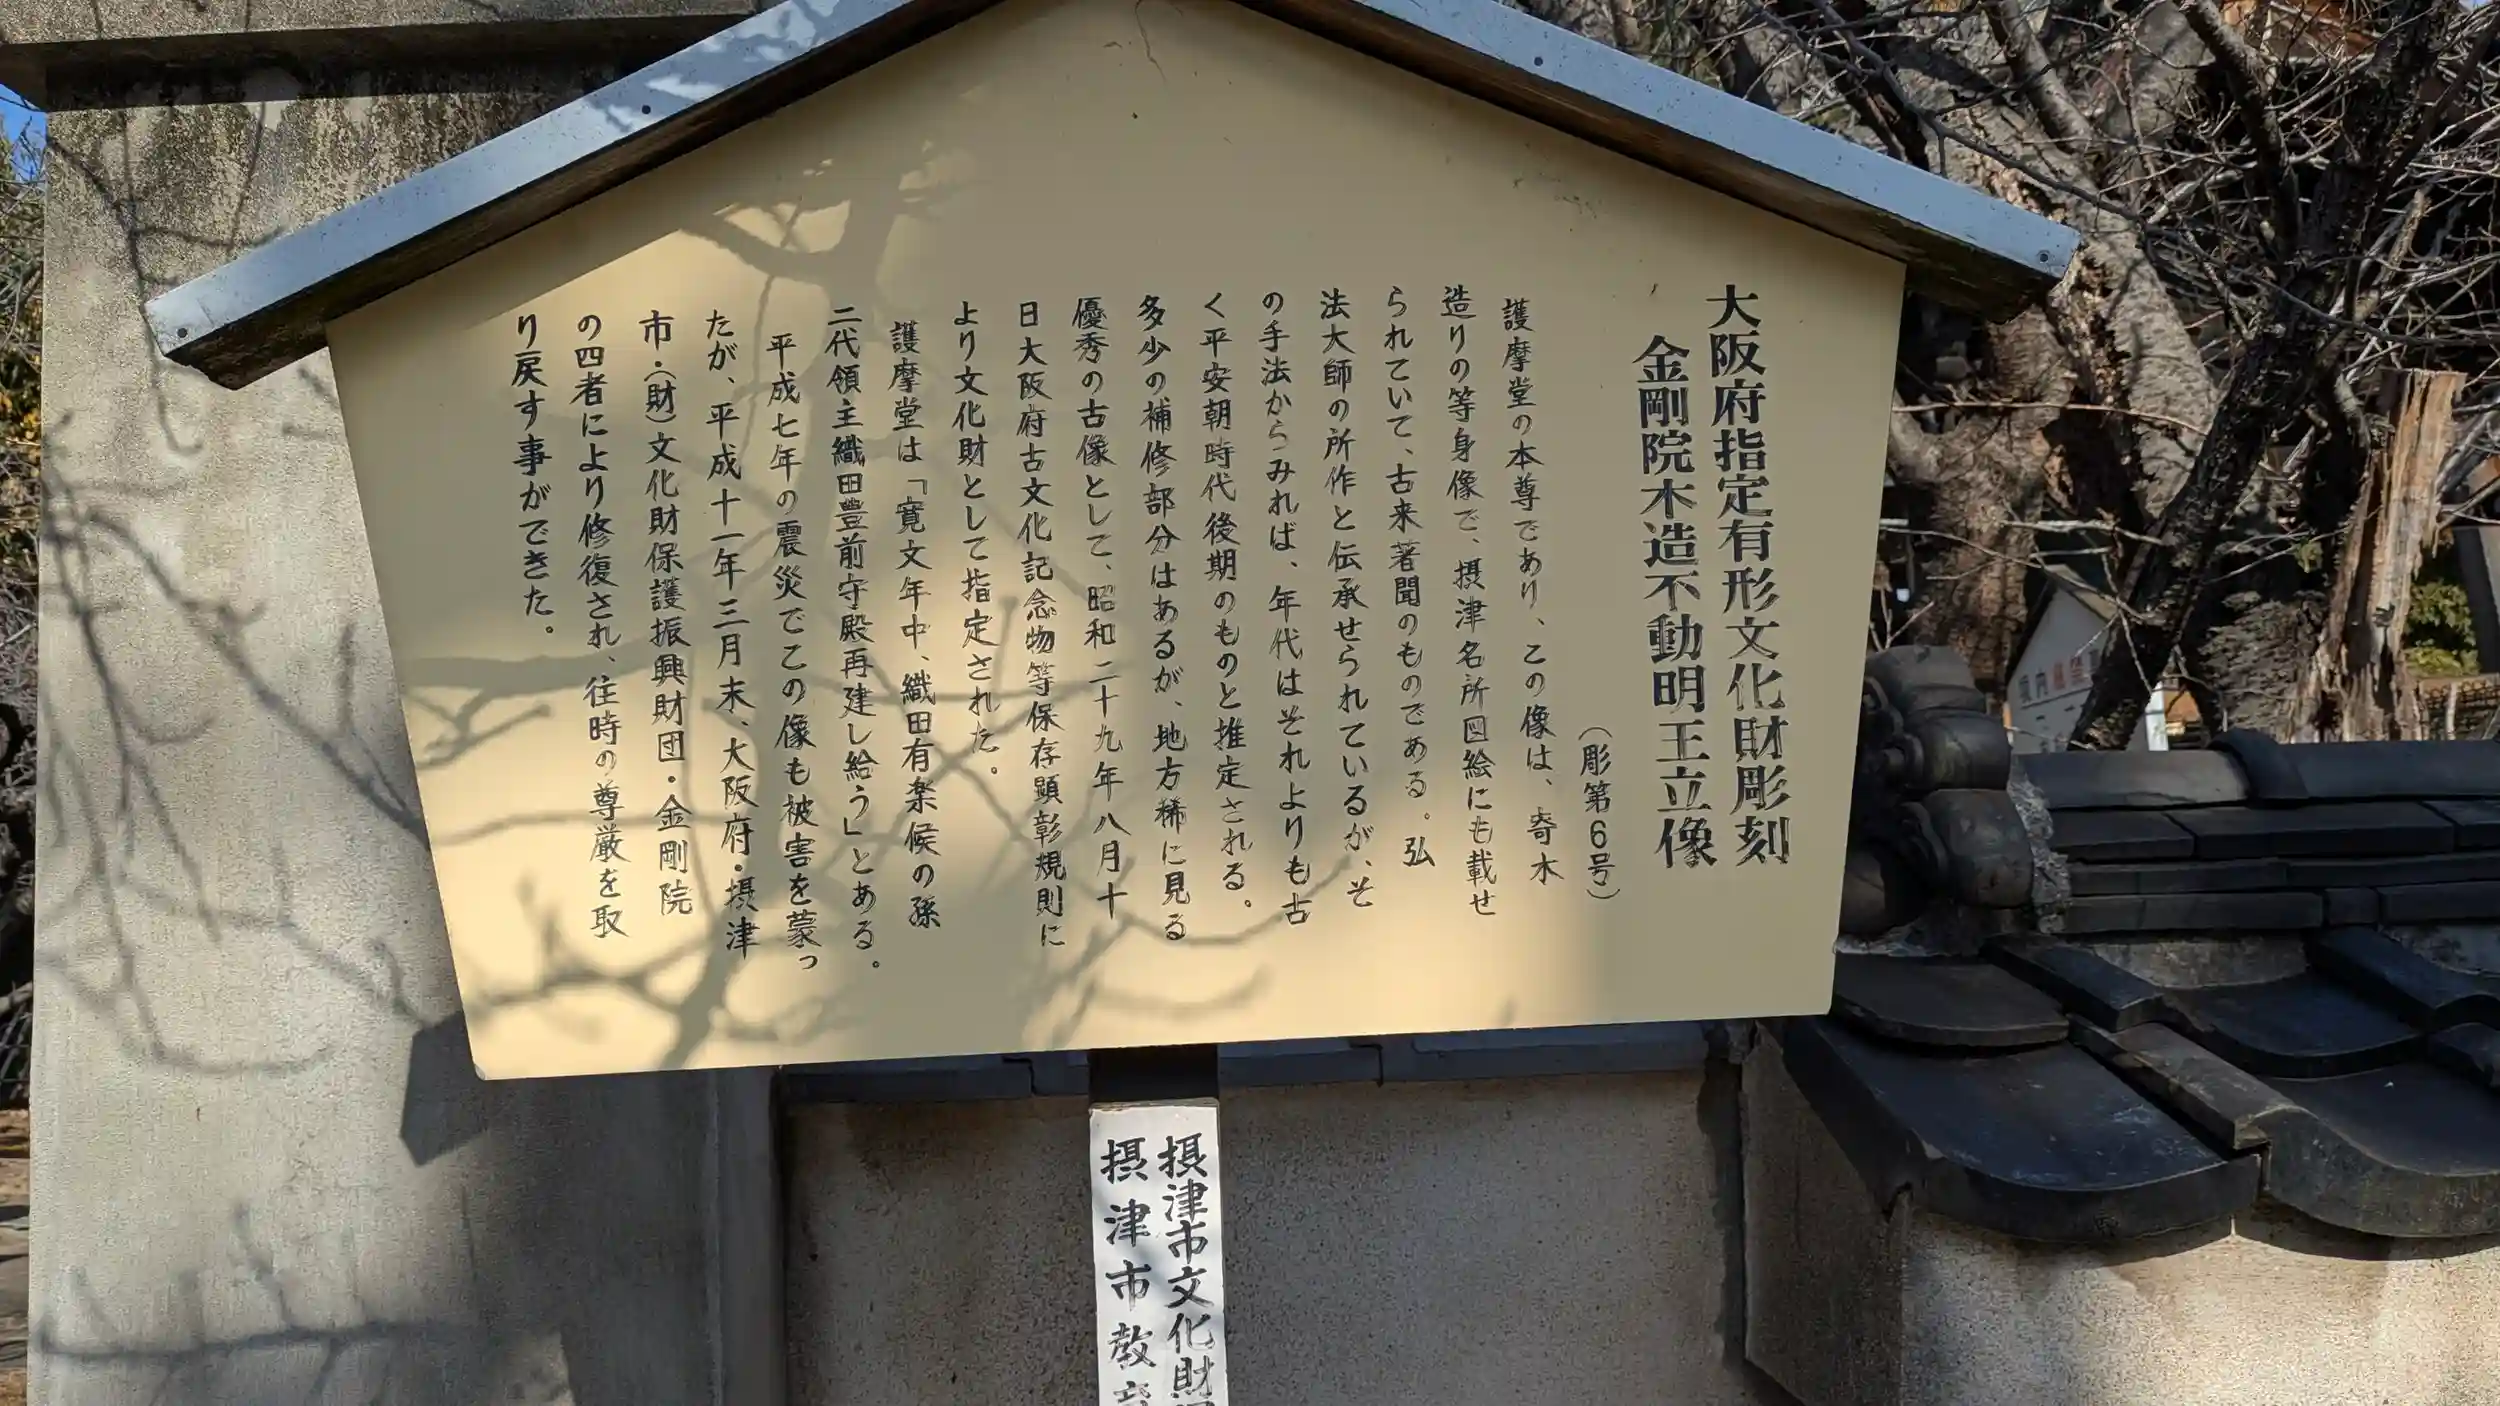 大阪府指定有形文化財彫刻
金剛院木造不動明王立像
（彫第6号）
護摩堂の本尊であり、この像は、寄木
造りの等身像で、摂津名所図絵にも載せ
られていて、古来著聞のものである。弘
法大師の所作と伝承せられているが、そ
の手法からみれば、年代はそれよりも古
く平安朝時代後期のものと推定される。
多少の補修部分はあるが、地方稀に見る
優秀の古像として、昭和二十九年八月十
日大阪府古文化記念物等保存顕彰規則に
より文化財として指定された。
護摩堂は「寛文年中、織田有楽候の孫
二代領主織田豊前守殿再建し給う」とある。
平成七年の震災でこの像も被害を蒙っ
たが、平成十一年三月末、大阪府・摂津
市・（財）文化財保護振興財団・金剛院
の四者により修復され、往時の尊厳を取
り戻す事ができた。
摂津市文化財
摂津市教